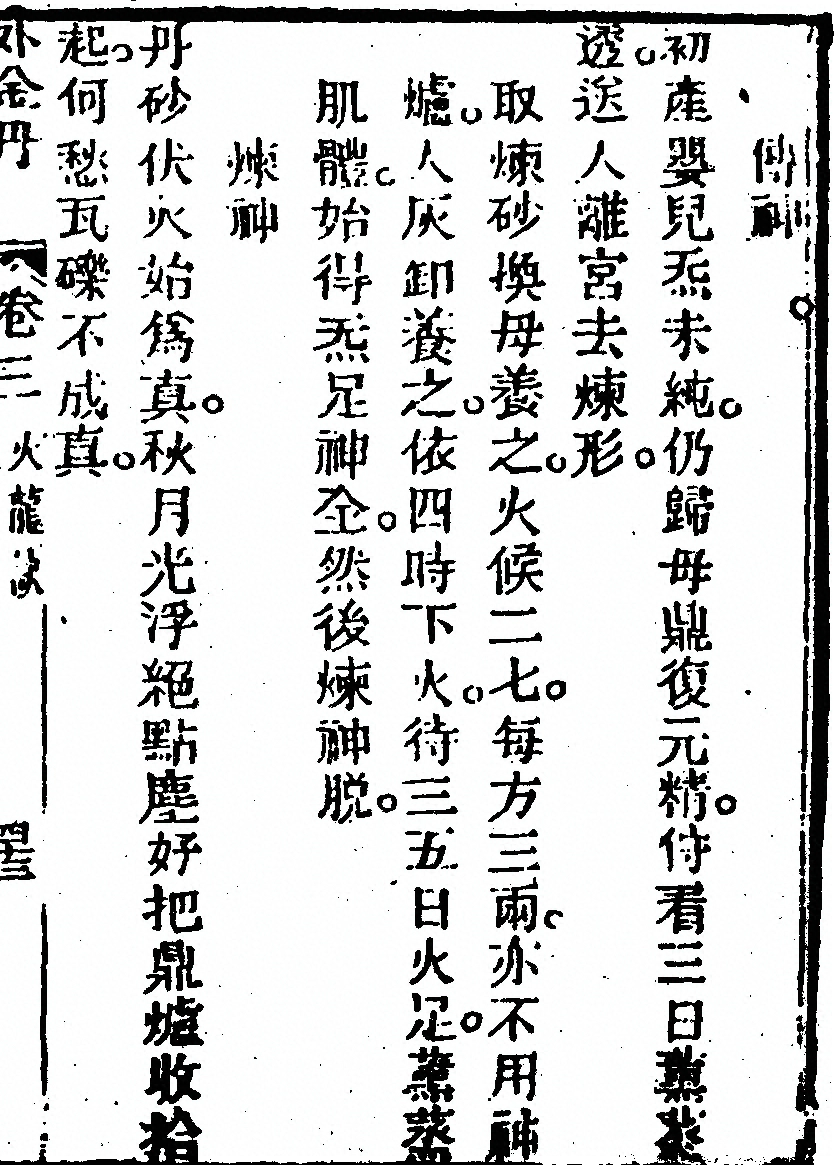 傳神
初產嬰兒炁未純。仍歸母鼎復元精。侍看三日薰蒸
透。送人離宮去煉形。
取煉砂換母養之。火候二七。每方三兩。亦不用神
爐。人灰卸養之。依四時下火。待三五日火足。薰蒸
肌體。始得炁足神全。然後煉神脱。
煉神
丹砂伏火始爲真。秋月光浮絕點塵好把鼎爐收拾
起。何愁瓦礫不成真。
外金丹 卷三 火龍訣 四三